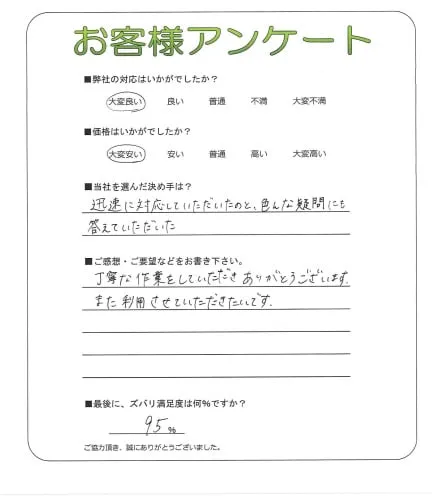 お客様アンケート
■弊社の対応はいかがでしたか?
大変良い 良い 普通 不満 大変不満
■価格はいかがでしたか?
大変安い 安い 普通 高い 大変高い
■当社を選んだ決め手は?
迅速に対応していただいたのと、色んな疑問にも
答えていただいた
■ご感想・ご要望などをお書き下さい。
丁寧な作業をしていただきありがとうございます。
また利用させていただきたいです。
■最後に、ズバリ満足度は何%ですか?
95%
ご協力頂き、誠にありがとうございました。